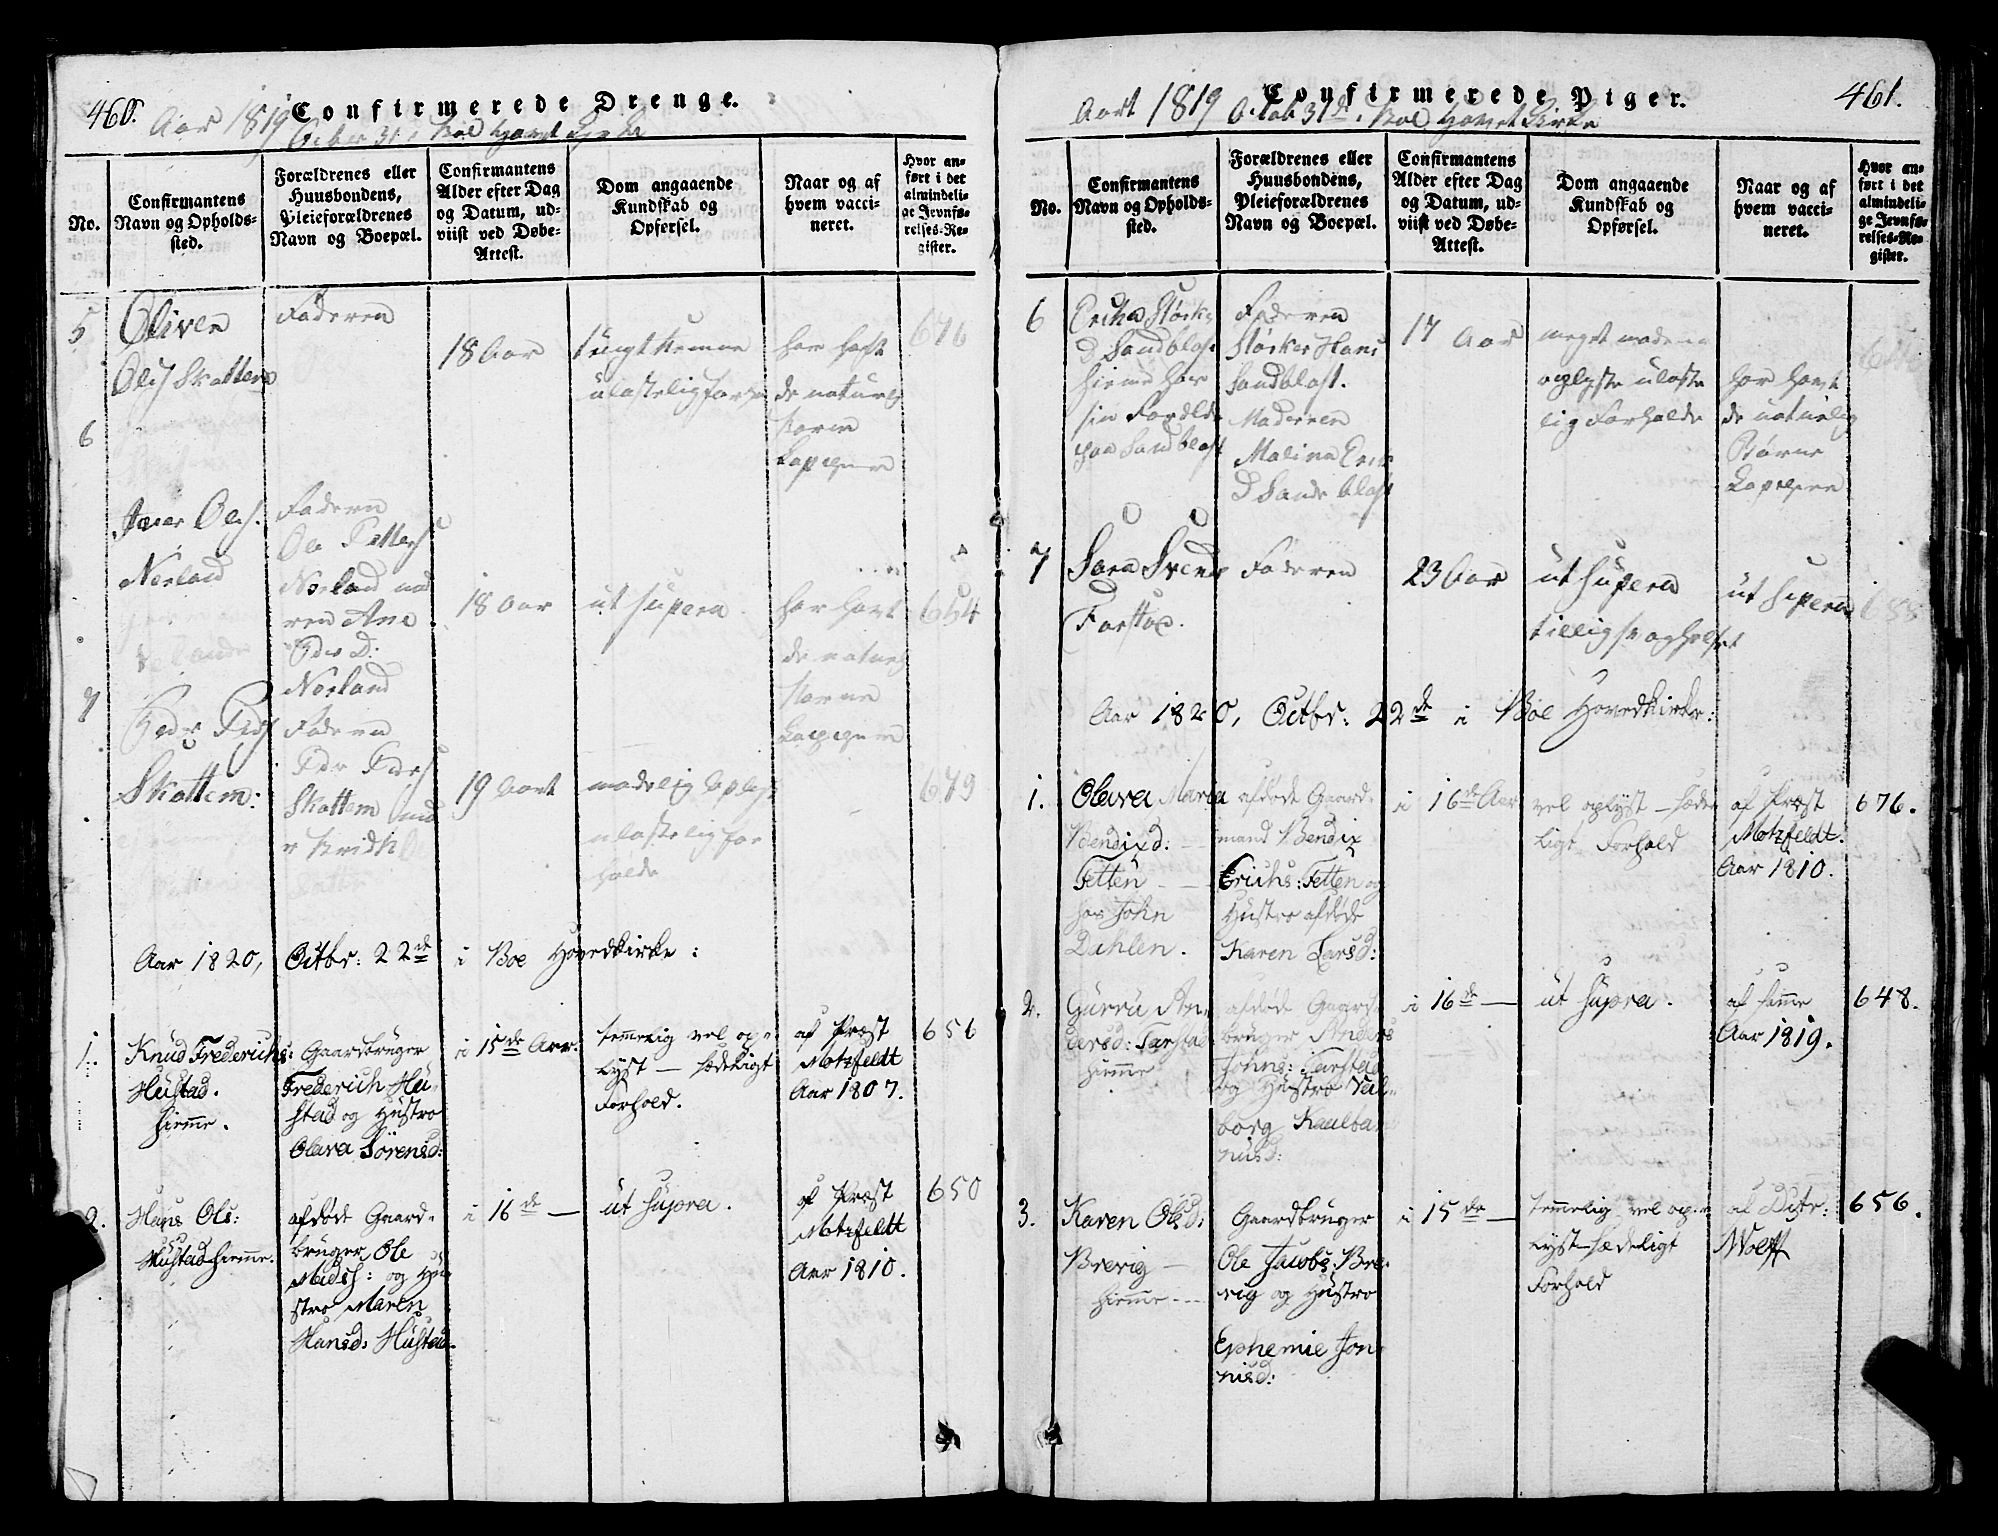 460.
Confirmerede Drenge.
Aar 1819
No.
Confirmantens
Navn og Opholds-
sted.
Forældrenes eller
Huusbondens,
Pleieforældrenes
Navn og Boepæl.
Confirmantens
Alder efter Dag
og Datum, ud-
viist ved Døbe-
Attest.
Dom angaaende
Kundskab og
Opførsel.
Naar og af
hvem vacci-
neret.
Hvor an-
ført i det
almindeli-
ge Jevnfø-
relses-Re-
gister.
5
Oliven
Ols Skottem
Faderen
18 Aar
har haft
de naturlig
676
6
Iver Ols.
Norland
Faderen
Ole Petters
Norland
Ane
Norland
18 Aar
ut supera.
har havt
de naturlig
654
7
Peder Peds
Skottem:
Faderen
Skottem
19 Aar
679
Aar 1820, Octbr: 22de i Boe Hovedkirke:
1.
Knud Frederichs:
Hustad.
hiemme.
Gaardbruger
Frederich Hu-
stad og Hustro
Olava Sörensd:
i 15de Aar.
temmelig vel op-
lyst — sædeligt
Forhold.
af Præst
Motzfeldt
Aar 1807.
656
2.
Hans Ols:
Hustad hiemme.
afdöde Gaard-
bruger Ole
Madss: og Hu-
stro Maren
Hansd: Hustad.
i 16de —
ut supra.
af Præst
Motzfeldt
Aar 1810.
650
461.
Confirmerede Piger.
Aaret 1819 Octob 31d.
No.
Confirmantens
Navn og Opholds-
sted.
Forældrenes eller
Huusbondens,
Pleieforældrenes
Navn og Boepæl.
Confirmantens
Alder efter Dag
og Datum, ud-
viist ved Døbe-
Attest.
Dom angaaende
Kundskab og
Opførsel.
Naar og af
hvem vacci-
neret.
Hvor an-
ført i det
almindeli-
ge Jevnfø-
relses-Re-
gister.
6
Ericha Størks
D Sandblost
hieme hos
sin Forældr
paa Sandblost
Faderen
Størker Hans
Sandblost.
Moderen
Malina Erich
D Sandeblost
17 Aar
oplyste ulaste
lig Forholde
har havt
de naturlig
Børne
Kopperne
7
Sara Svends
Farstad.
Faderen
23 Aar
ut supera
ut supera
688
Aar 1820, Octbr: 22de i Boe Hovedkirke:
1.
Olava Maria
Bendixd:
Tetten
hos John
Dahlen.
afdöde Gaard-
mand Bendix
Erichs: Tetten og
Hustro afdöde
Karen Larsd:
i 16de Aar
vel oplyst — sæde
ligt Forhold
af Præst
Motzfeldt.
Aar 1810.
676.
2.
Gurru An-
dersd: Farstad
hiemme
afdöde Gaard-
bruger Anders
Johns: Farstad
og Hustro Val-
borg
nusd:
i 16de —
ut supra.
af samme
Aar 1819.
648.
3.
Karen Olsd:
Brevig —
hiemme ---
Gaardbruger
Ole Jacobs: Bre-
vig og Hustro
Ephemie Jon-
nisd:
i 15de —
temmelig vel op-
lyst — sædeligt
Forhold
af Distr:
Wolff
656.